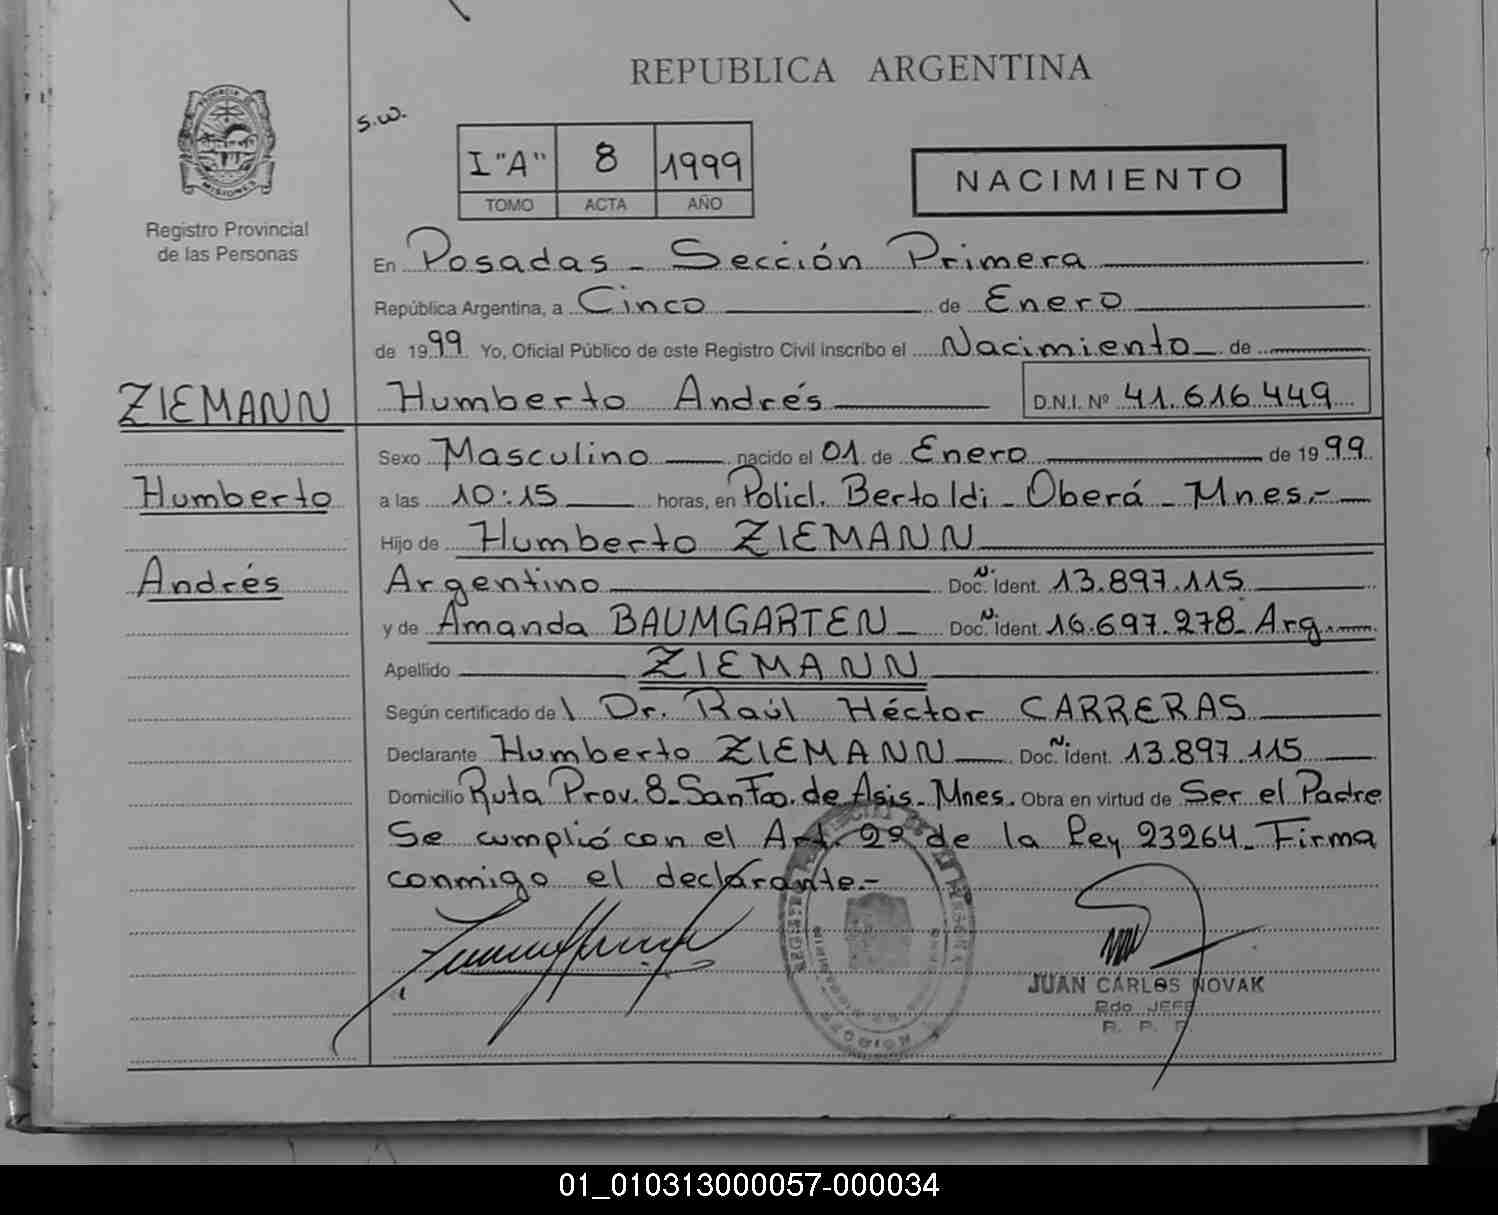 REPUBLICA ARGENTINA
s.w.
I "A" 8 1999
TOMO ACTA AÑO
NACIMIENTO
PROVINCIA DE
MISIONES
Registro Provincial
de las Personas
En Posadas - Sección Primera
República Argentina, a Cinco de Enero
de 1999 Yo, Oficial Público de este Registro Civil inscribo el Nacimiento de
ZIEMANN
Humberto Andrés D.N.I. Nº 41.616.449
Sexo Masculino nacido el 01 de Enero de 1999
Humberto
a las 10:15 horas, en Policl. Bertoldi - Oberá - Mnes.-
Hijo de Humberto ZIEMANN
Andrés
Argentino Doc. N. Ident. 13.897.115
y de Amanda BAUMGARTEN - Doc. N. Ident. 16.697.278- Arg.
Apellido ZIEMANN
Según certificado de l Dr. Raúl Héctor CARRERAS
Declarante Humberto ZIEMANN Doc. N. Ident. 13.897.115
Domicilio Ruta Prov. 8- San Fco. de Asis- Mnes. Obra en virtud de Ser el Padre
Se cumplió con el Art. 2º de la Ley 23264- Firma
conmigo el declarante.-
JUAN CARLOS NOVAK
JEFE
R. P. P.
01_010313000057-000034